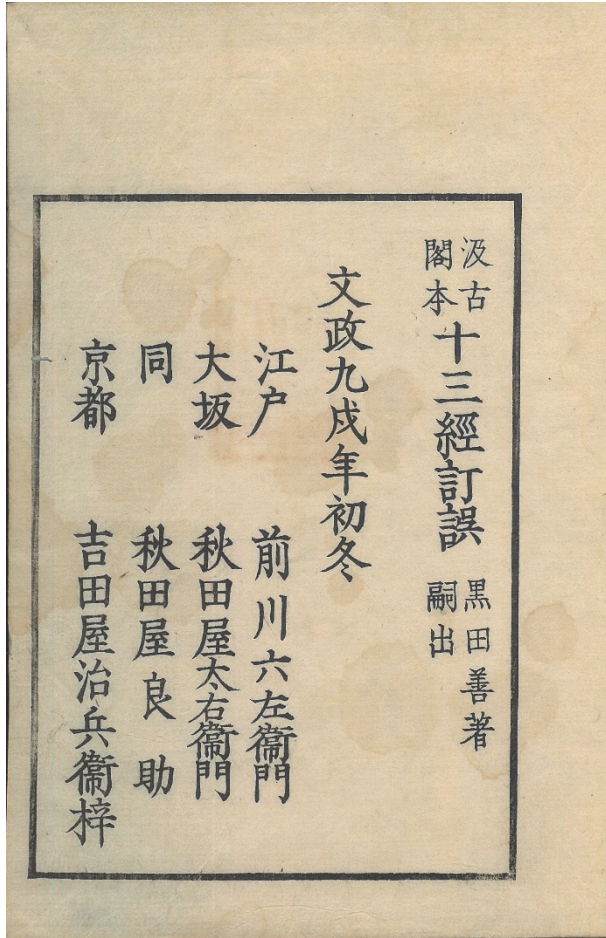 汲古
閣本
十三經訂誤
黒田善著
嗣出
文政九戌年初冬
江戸 前川六左衞門
大坂 秋田屋太右衞門
同 秋田屋良助
京都 吉田屋治兵衞梓